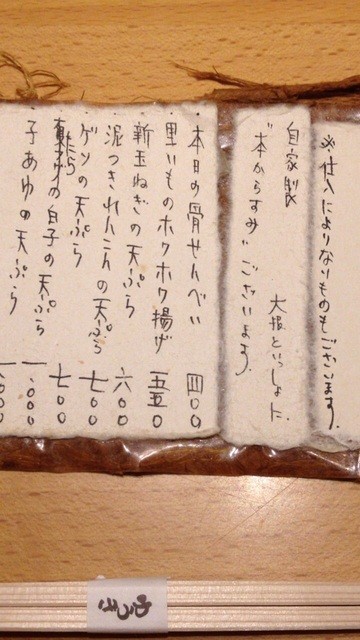 ※仕入によりないものもございます。
自家製
"本からすみ" ございます。
大根といっしょに。
本日の骨せんべい 四〇〇
里いものホクホク揚げ 五五〇
新玉ねぎの天ぷら 六〇〇
泥つきれんこんの天ぷら 七〇〇
ゲソの天ぷら 七〇〇
たらの白子の天ぷら 一.〇〇〇
子あゆの天ぷら 一.〇〇〇